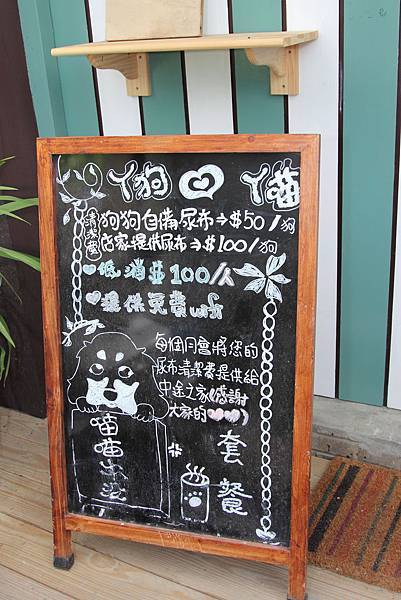 ㄚ狗♡ㄚ貓
清潔費
狗狗自備尿布→$50/狗
店家提供尿布→$100/狗
低消$100/人
提供免費wifi
每個月會將您的
尿布清潔費提供給
中途之家(感謝
大家的♡♡)
套餐